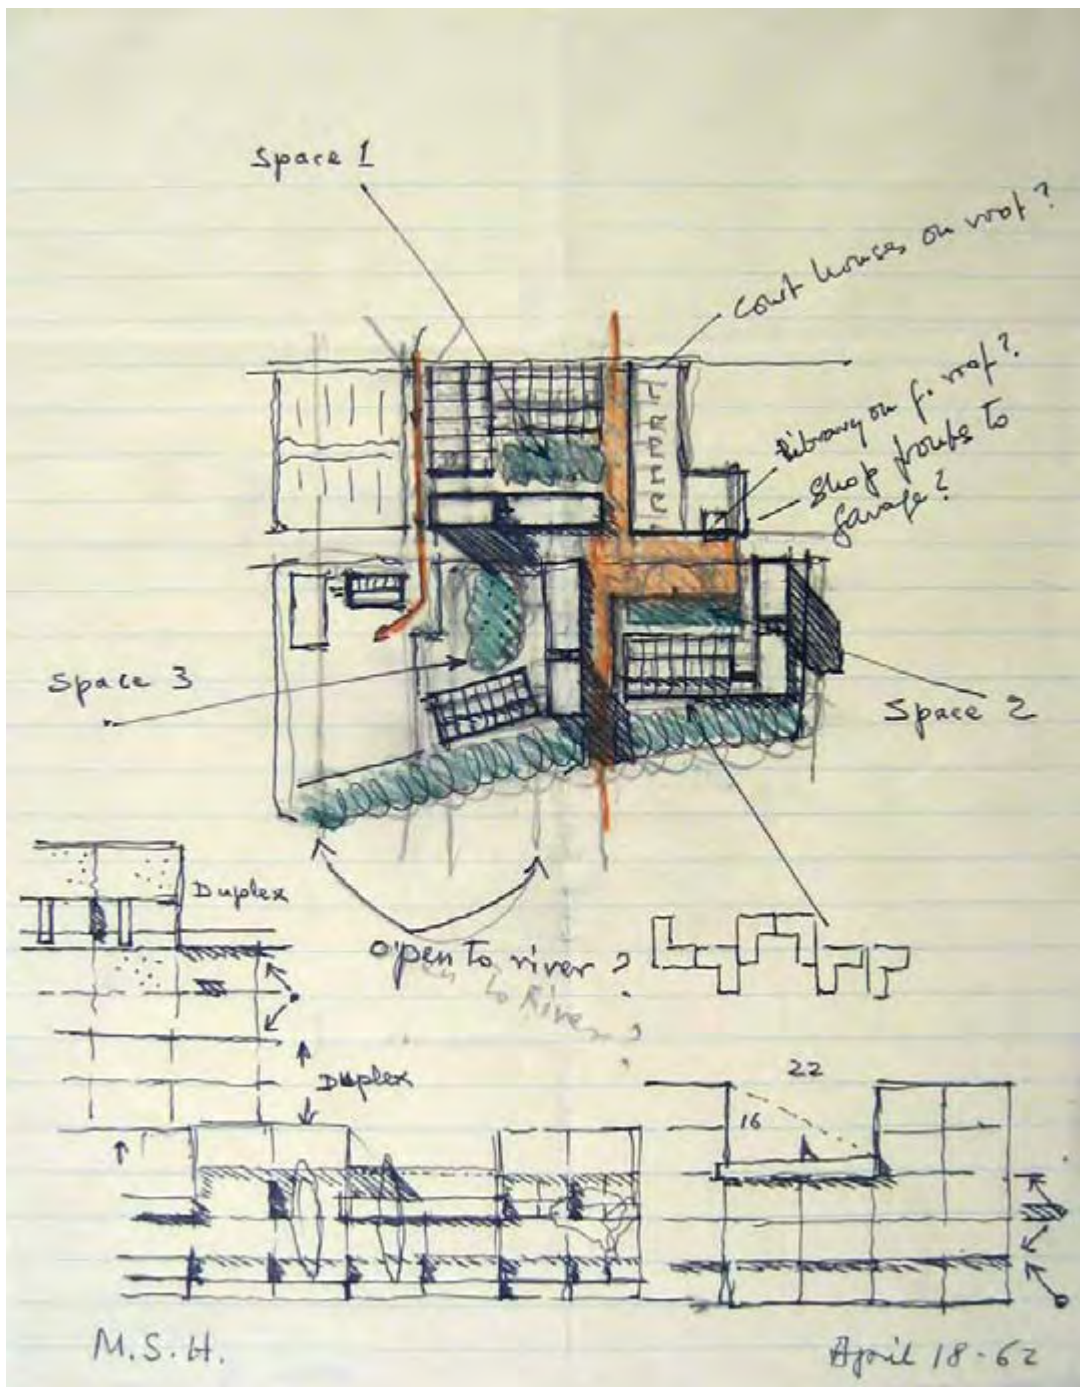 Space 1
Court houses on roof?
Library on f. roof?
Shop fronts to
garage?
Space 3
Space 2
Duplex
Open to river?
to River?
Duplex
22
16
M.S.H.
April 18-62